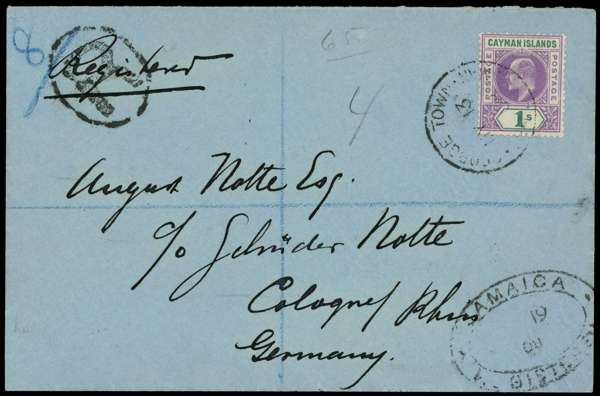 8
65
Registered
4
CAYMAN ISLANDS
POSTAGE
POSTAGE
1s
GEORGE TOWN
August Notte Esq.
c/o Schnüder Notte
Cologne/Rhin
Germany.
JAMAICA
19